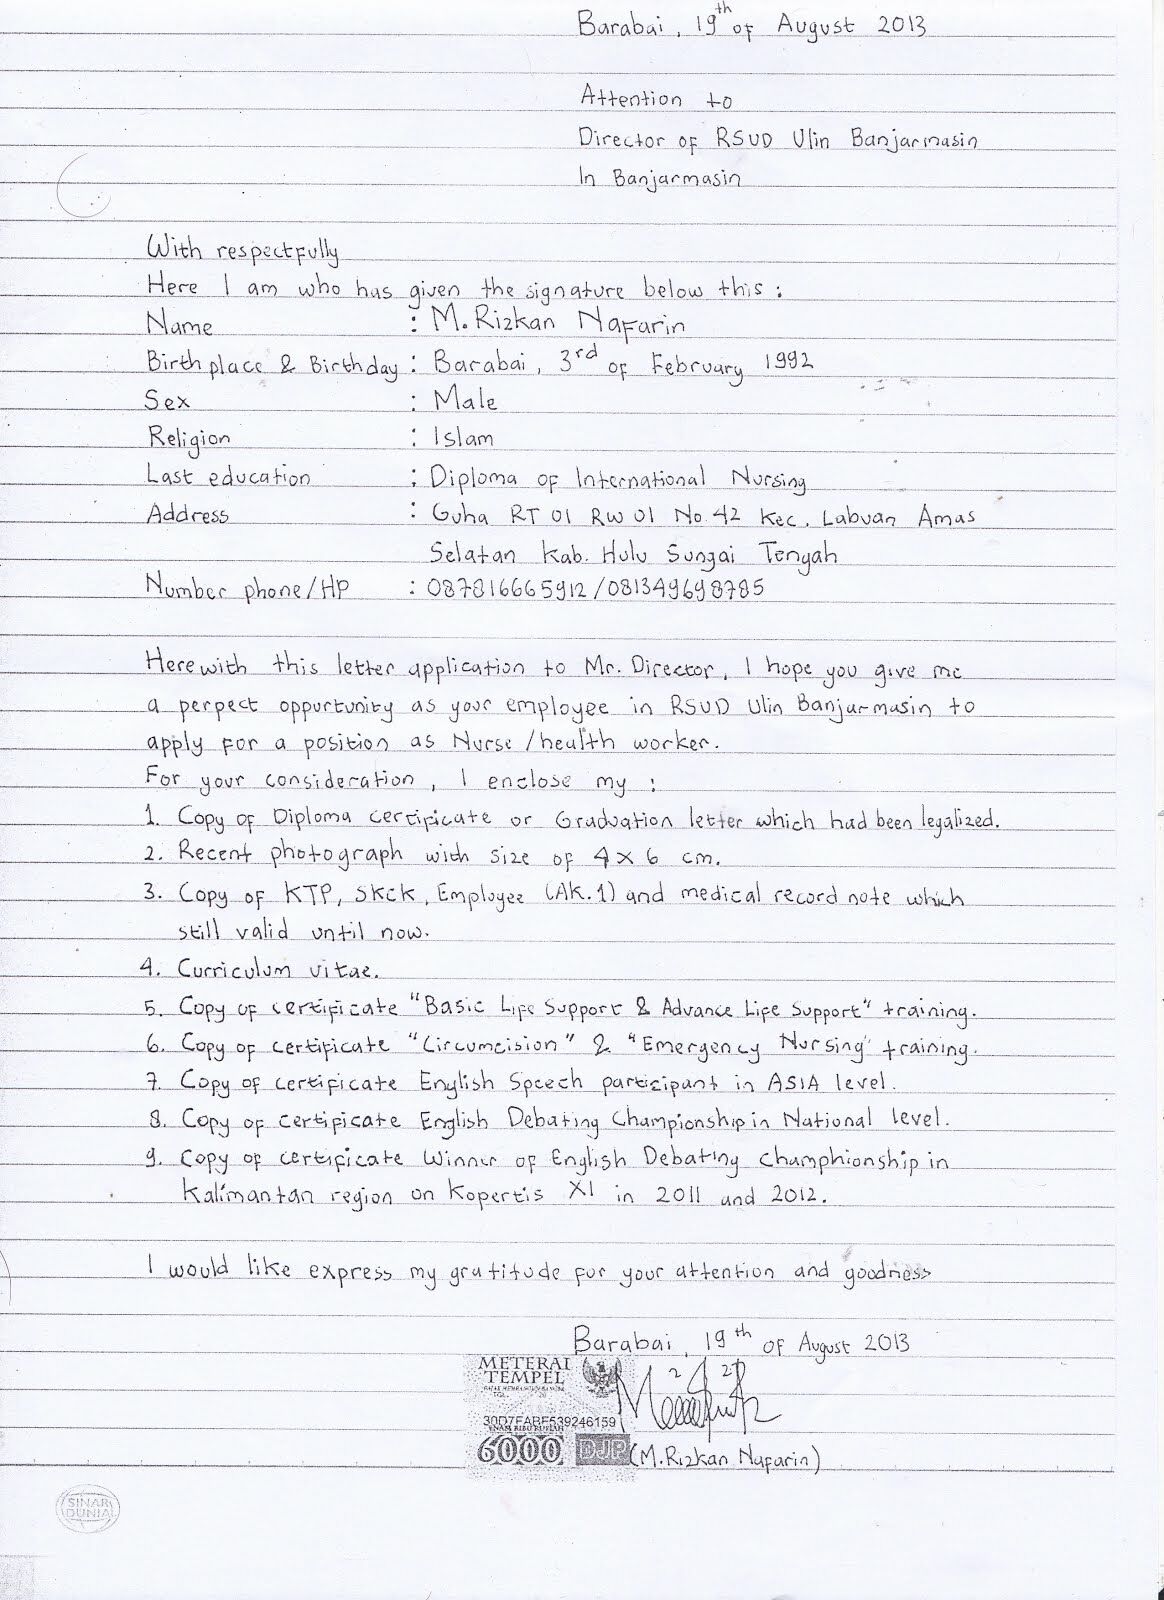 Barabai, 19th of August 2013
Attention to
Director of RSUD Ulin Banjarmasin
In Banjarmasin
With respectfully
Here I am who has given the signature below this :
Name : M. Rizkan Nafarin
Birthplace & Birthday : Barabai, 3rd of February 1992
Sex : Male
Religion : Islam
Last education : Diploma of International Nursing
Address : Guha RT 01 RW 01 No.42 Kec. Labuan Amas
Selatan Kab. Hulu Sungai Tengah
Number phone/HP : 087816665912/081349698785
Herewith this letter application to Mr. Director, I hope you give me
a perpect oppurtunity as your employee in RSUD Ulin Banjarmasin to
apply for a position as Nurse/health worker.
For your consideration, I enclose my :
1. Copy of Diploma certificate or Graduation letter which had been legalized.
2. Recent photograph with size of 4x6 cm.
3. Copy of KTP, SKCK, Employee (AK.1) and medical record note which
still valid until now.
4. Curriculum vitae.
5. Copy of certificate "Basic Life Support & Advance Life Support" training.
6. Copy of certificate "Circumcision" & "Emergency Nursing" training.
7. Copy of certificate English Speech participant in ASIA level.
8. Copy of certificate English Debating Championship in National level.
9. Copy of certificate Winner of English Debating champhionship in
Kalimantan region on Kopertis XI in 2011 and 2012.
I would like express my gratitude for your attention and goodness
Barabai, 19th of August 2013
METERAI
TEMPEL
30D7FABF539246159
ENAM RIBU RUPIAH
6000 DJP
(M.Rizkan Nafarin)
SINAR
DUNIA